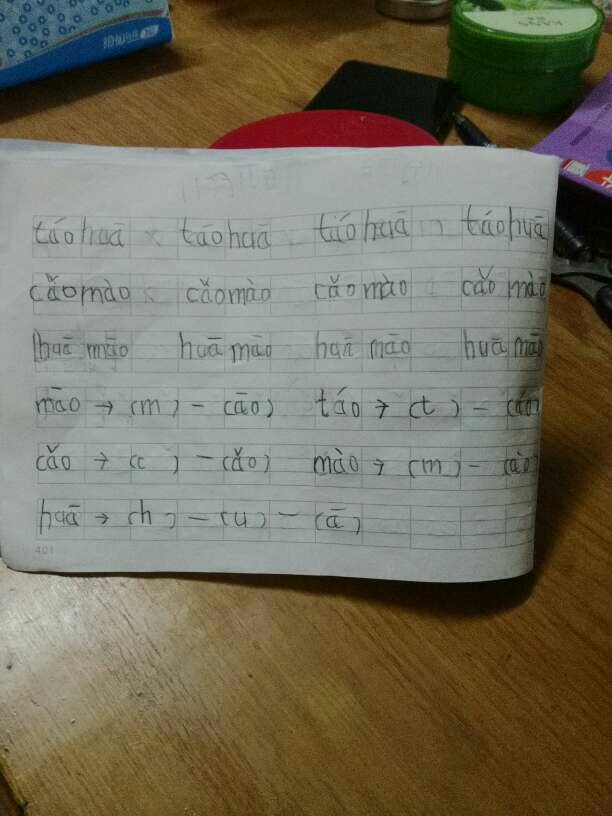 KANS
táo huā táo huā táo huā táo huā
cǎo mào cǎo mào cǎo mào cǎo mào
huā māo huā māo huā māo huā māo
māo → (m) - (āo) táo → (t) - (áo)
cǎo → (c) - (ǎo) mào → (m) - (ào)
huā → (h) - (u) - (ā)
401